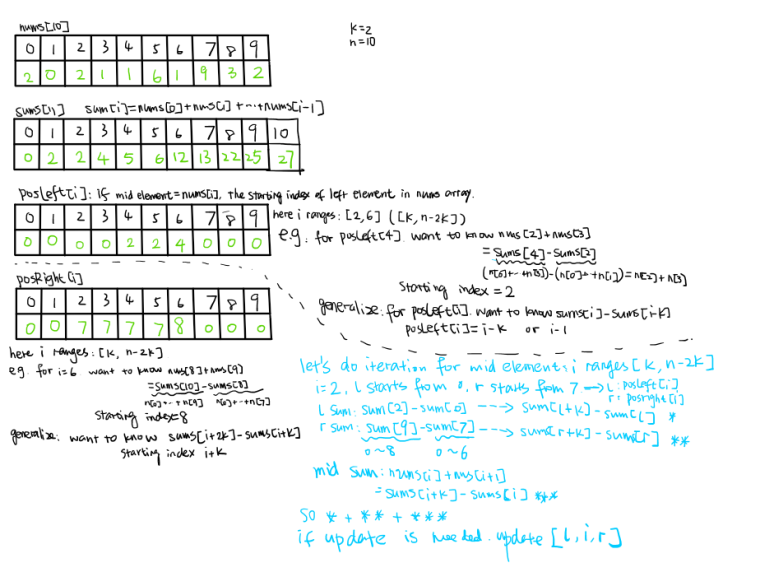 nums[10]
k=2
n=10
0 1 2 3 4 5 6 7 8 9
2 0 2 1 1 6 1 9 3 2
sums[11] sum[i]=nums[0]+nums[1]+...+nums[i-1]
0 1 2 3 4 5 6 7 8 9 10
0 2 2 4 5 6 12 13 22 25 27
posLeft[i]: if mid element=nums[i], the starting index of left element in nums array.
0 1 2 3 4 5 6 7 8 9
0 0 0 0 2 2 4 0 0 0
here i ranges: [2,6] ([k, n-2k])
e.g. for posleft[4]. want to know nums[2]+nums[3]
=sums[4]-sums[2]
(n[0]+--+n[3])-(n[0]+-+n[1])=n[2]+n[3]
starting index=2
generalize: for posleft[i]. want to know sums[i]-sums[i-k]
posleft[i]=i-k or i-1
posRight[i]
0 1 2 3 4 5 6 7 8 9
0 0 7 7 7 7 8 0 0 0
here i ranges: [k, n-2k]
eg. for i=6 want to know nums[8]+nums[9]
=sums[10]-sums[8]
n[0]+-+n[9] n[0]+-+n[7]
starting index=8
generalize: want to know sums[i+2k]-sums[i+k]
starting index i+k
let's do iteration for mid element: i ranges[k, n-2k]
i=2, l starts from 0, r starts from 7 → l: posleft[i]
r: posright[i]
l sum: sum[2]-sum[0] ---> sum[l+k]-sum[l] *
r sum: sum[9]-sum[7] ---> sum[r+k]-sum[r] **
0~8 0~6
mid sum: nums[i]+nums[i+1]
=sums[i+k]-sums[i] ***
so * + ** + ***
if update is needed. update [l, i, r]